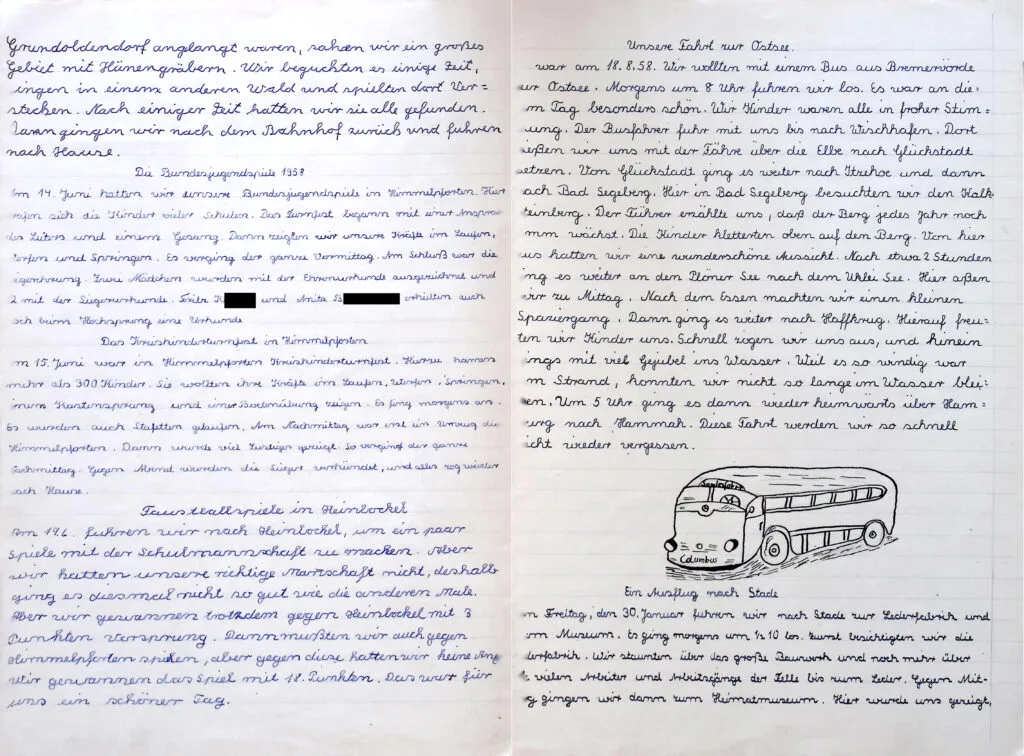 Grundoldendorf anglangt waren, sahen wir ein großes
Gebiet mit Hünengräbern. Wir beguchten es einige Zeit,
ingen in einem anderen Wald und spielten dort Ver=
stecken. Nach einiger Zeit hatten wir sie alle gefunden.
Dann gingen wir nach dem Bahnhof zurück und fuhren
nach Hause.
Die Bundesjugendspiele 1958
Am 14. Juni hatten wir unsere Bundesjugendspiele in Himmelpforten. Hier
rafen sich die Kinder vieler Schulen. Das Turnfest begann mit einer Anspra
des Leiters und einem Gesang. Dann zeigten wir unsere Kräfte im Laufen,
erfen und Springen. Es verging der ganze Vormittag. Am Schluß war die
iegerehrung. Zwei Mädchen wurden mit der Ehrenurkunde ausgezeichnet und
2 mit der Siegerurkunde. Fritz K und Anita B erhielten auch
och beim Hochsprung eine Urkunde
Das Kreiskinderturnfest in Himmelpforten
m 15. Juni war in Himmelpforten Kreiskinderturnfest. Hierzu kamen
mehr als 300 Kinder. Sie wollten ihre Kräfte im Laufen, Werfen, Springen,
inem Kastensprung und einer Bodenübung zeigen. Es fing morgens an.
Es wurden auch Stafetten gelaufen. Am Nachmittag war erst ein Umzug du
Himmelpforten. Dann wurde viel Lustiges gezeigt. So verging der ganze
achmittag. Gegen Abend wurden die Sieger verkündet, und alles zog wieder
ach Hause.
Faustballspiele in Heinbockel
Am 19.6. fuhren wir nach Heinbockel, um ein paar
Spiele mit der Schulmannschaft zu machen. Aber
wir hatten unsere richtige Mannschaft nicht, deshalb
ging es diesmal nicht so gut wie die anderen Male.
Aber wir gewannen trotzdem gegen Heinbockel mit 3
Punkten Vorsprung. Dann mußten wir auch gegen
Himmelpforten spielen, aber gegen diese hatten wir keine Ang
Wir gewannen das Spiel mit 18 Punkten. Das war für
uns ein schöner Tag.
Unsere Fahrt zur Ostsee.
war am 18.8.58. Wir wollten mit einem Bus aus Bremervörde
ur Ostsee. Morgens um 8 Uhr fuhren wir los. Es war an die=
m Tag besonders schön. Wir Kinder waren alle in froher Stim=
ung. Der Busfahrer fuhr mit uns bis nach Wischhafen. Dort
eßen wir uns mit der Fähre über die Elbe nach Glückstadt
etzen. Von Glückstadt ging es weiter nach Itzehoe und dann
ach Bad Segeberg. Hier in Bad Segeberg besuchten wir den Kalk
teinberg. Der Führer erzählte uns, daß der Berg jedes Jahr noch
mm wächst. Die Kinder kletterten oben auf den Berg. Von hier
us hatten wir eine wunderschöne Aussicht. Nach etwa 2 Stunden
ing es weiter an den Plöner See nach dem Uklei See. Hier aßen
wir zu Mittag. Nach dem Essen machten wir einen kleinen
Spaziergang. Dann ging es weiter nach Haffkrug. Hierauf freu=
ten wir Kinder uns. Schnell zogen wir uns aus, und hinein
ings mit viel Gejubel ins Wasser. Weil es so windig war
m Strand, konnten wir nicht so lange im Wasser blei=
en. Um 5 Uhr ging es dann wieder heimwärts über Ham=
urg nach Hammah. Diese Fahrt werden wir so schnell
icht wieder vergessen.
Sonderfahrt
Columbus
Ein Ausflug nach Stade
m Freitag, den 30. Januar fuhren wir nach Stade zur Lederfabrik und
um Museum. Es ging morgens um ½ 10 los. Zuerst besichtigten wir die
derfabrik. Wir staunten über das große Bauwerk und noch mehr über
e vielen Arbeiter und Arbeitsgänge der Felle bis zum Leder. Gegen Mit=
g gingen wir dann zum Heimatmuseum. Hier wurde uns gezeigt,